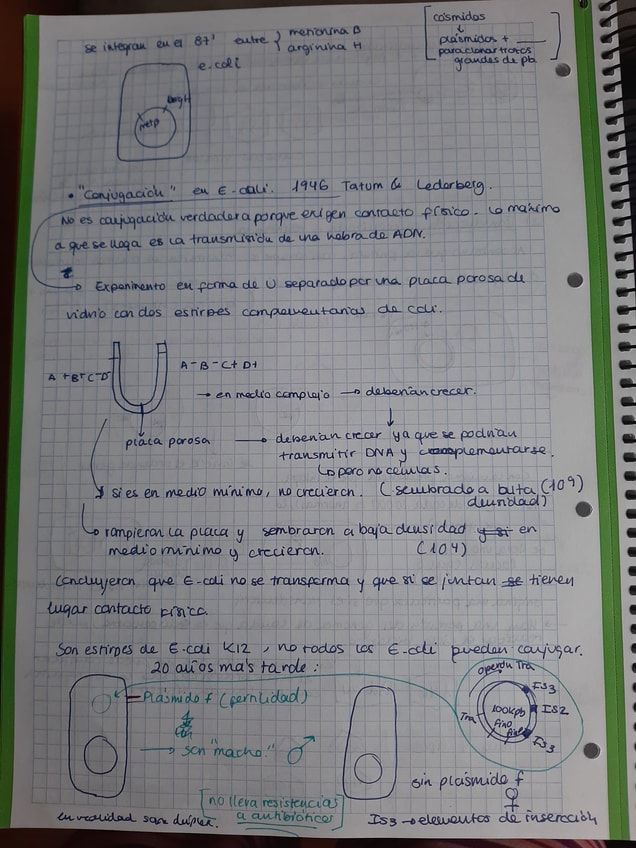 se integran en el 87' entre { metionina B
arginina H
[cósmidos
↓
plásmidos + ____
para clonar trozos
grandes de pb]
e.coli
argH
metB
• "Conjugación" en E-coli. 1946 Tatum & Lederberg.
No es conjugación verdadera porque exigen contacto físico. Lo máximo
a que se llega es la transmisión de una hebra de ADN.
→ Experimento en forma de U separado por una placa porosa de
vidrio con dos estirpes complementarias de coli.
A+B+C-D-
A-B-C+D+
→ en medio complejo → deberían crecer.
placa porosa → deberían crecer ya que se podrían
transmitir DNA y complementarse.
↳ pero no células.
→ si es en medio mínimo, no crecieron. (sembrado a alta (109)
densidad)
↳ rompieron la placa y sembraron a baja densidad y si en
medio mínimo y crecieron. (104)
Concluyeron que E-coli no se transforma y que si se juntan se tienen
lugar contacto físico.
Son estirpes de E-coli K12, no todos los E-coli pueden conjugar.
20 años más tarde:
Plásmido f (fertilidad)
→ son "macho" ♂
[no lleva resistencias
a antibióticos]
en realidad son
operón Tra
IS3
IS2
IS3
Tra
100Kpb
sin plásmido f
♀
IS3 → elementos de inserción